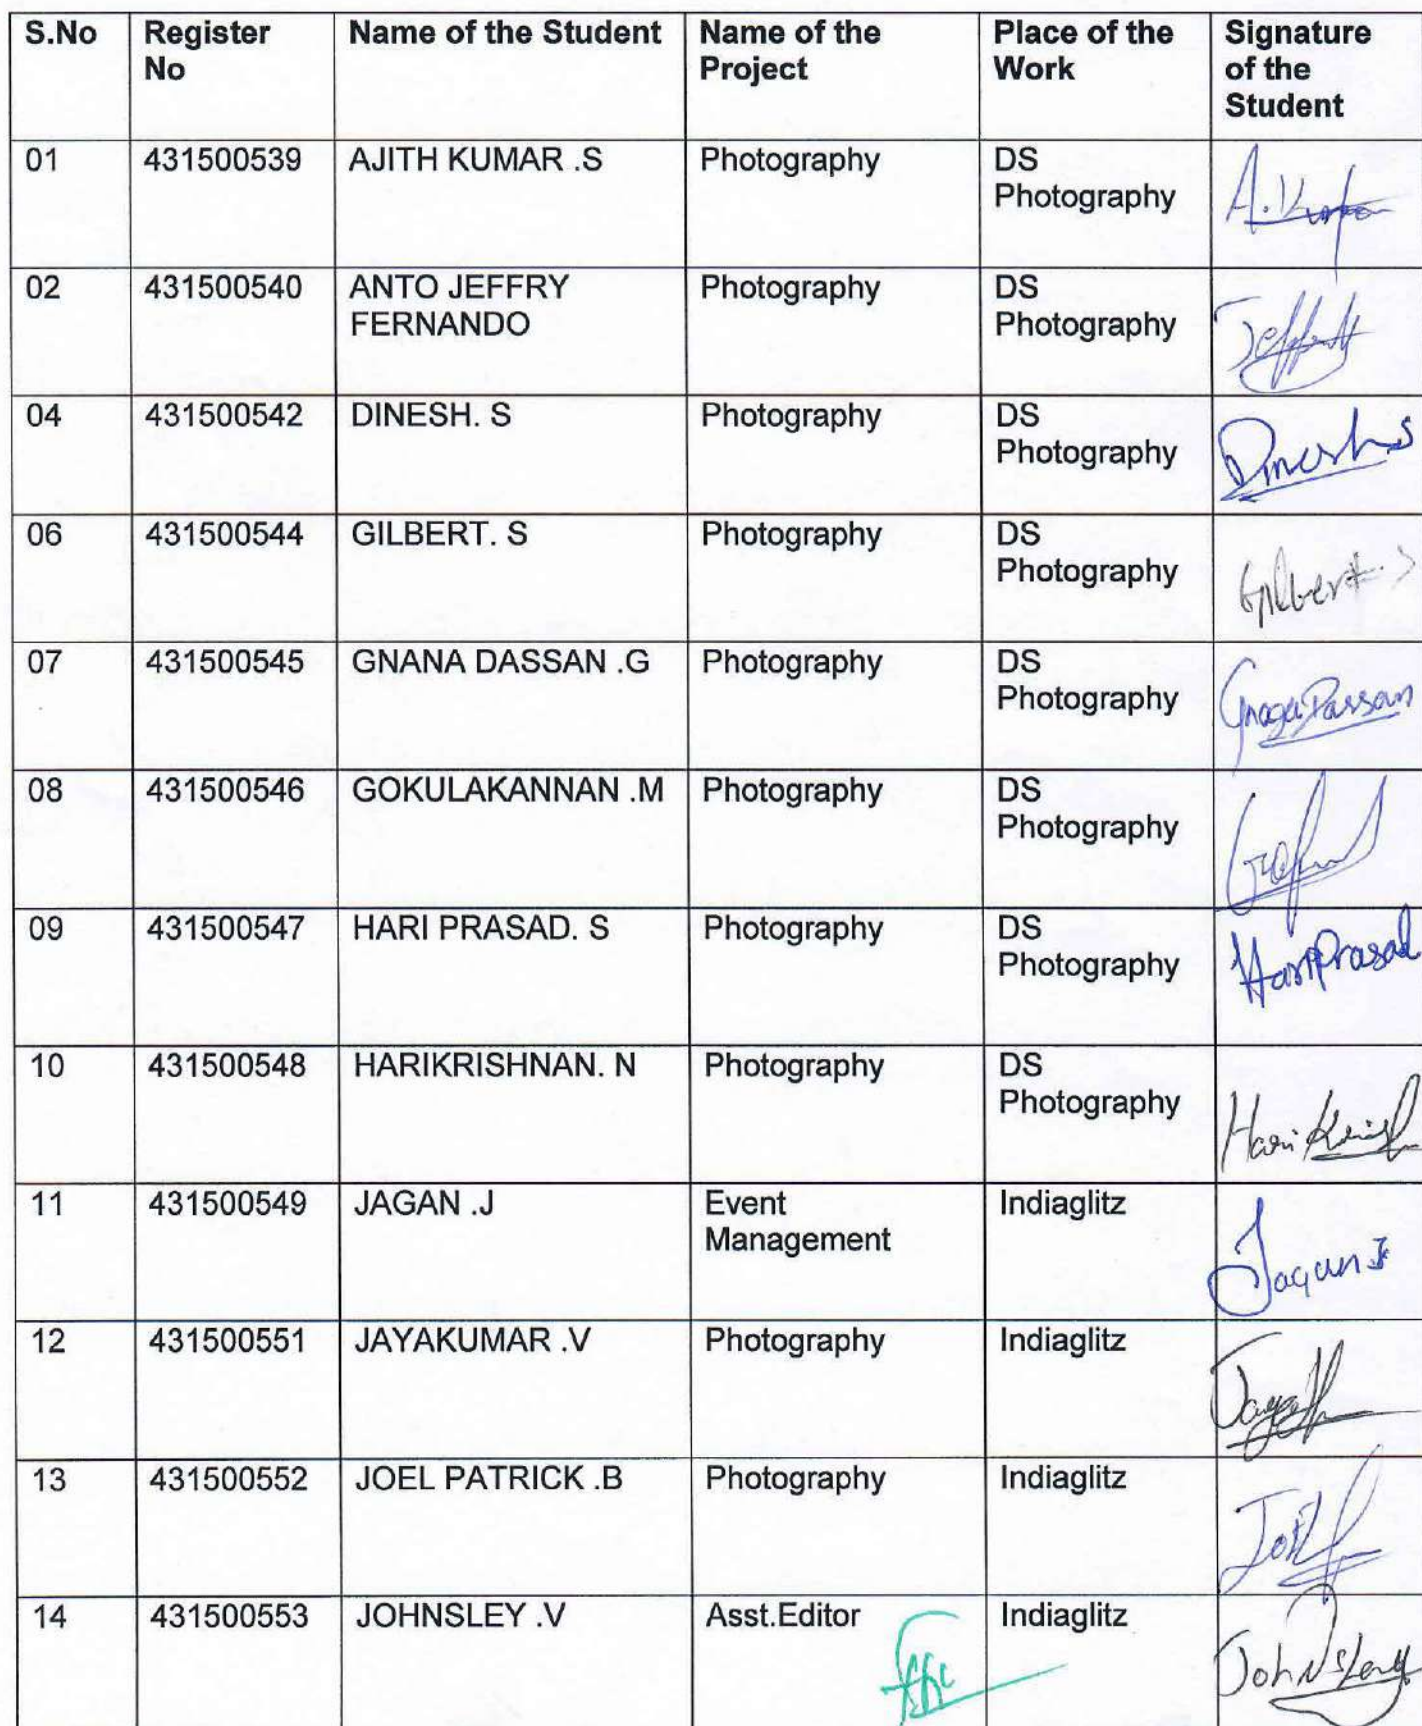 S.No Register No Name of the Student Name of the Project Place of the Work Signature of the Student
01 431500539 AJITH KUMAR .S Photography DS Photography A. Kumar
02 431500540 ANTO JEFFRY FERNANDO Photography DS Photography
04 431500542 DINESH. S Photography DS Photography Dinesh.S
06 431500544 GILBERT. S Photography DS Photography Gilbert.S
07 431500545 GNANA DASSAN .G Photography DS Photography
08 431500546 GOKULAKANNAN .M Photography DS Photography
09 431500547 HARI PRASAD. S Photography DS Photography HariPrasad
10 431500548 HARIKRISHNAN. N Photography DS Photography Hari Krish
11 431500549 JAGAN .J Event Management Indiaglitz Jagan J
12 431500551 JAYAKUMAR .V Photography Indiaglitz
13 431500552 JOEL PATRICK .B Photography Indiaglitz
14 431500553 JOHNSLEY .V Asst.Editor Indiaglitz Johnsley